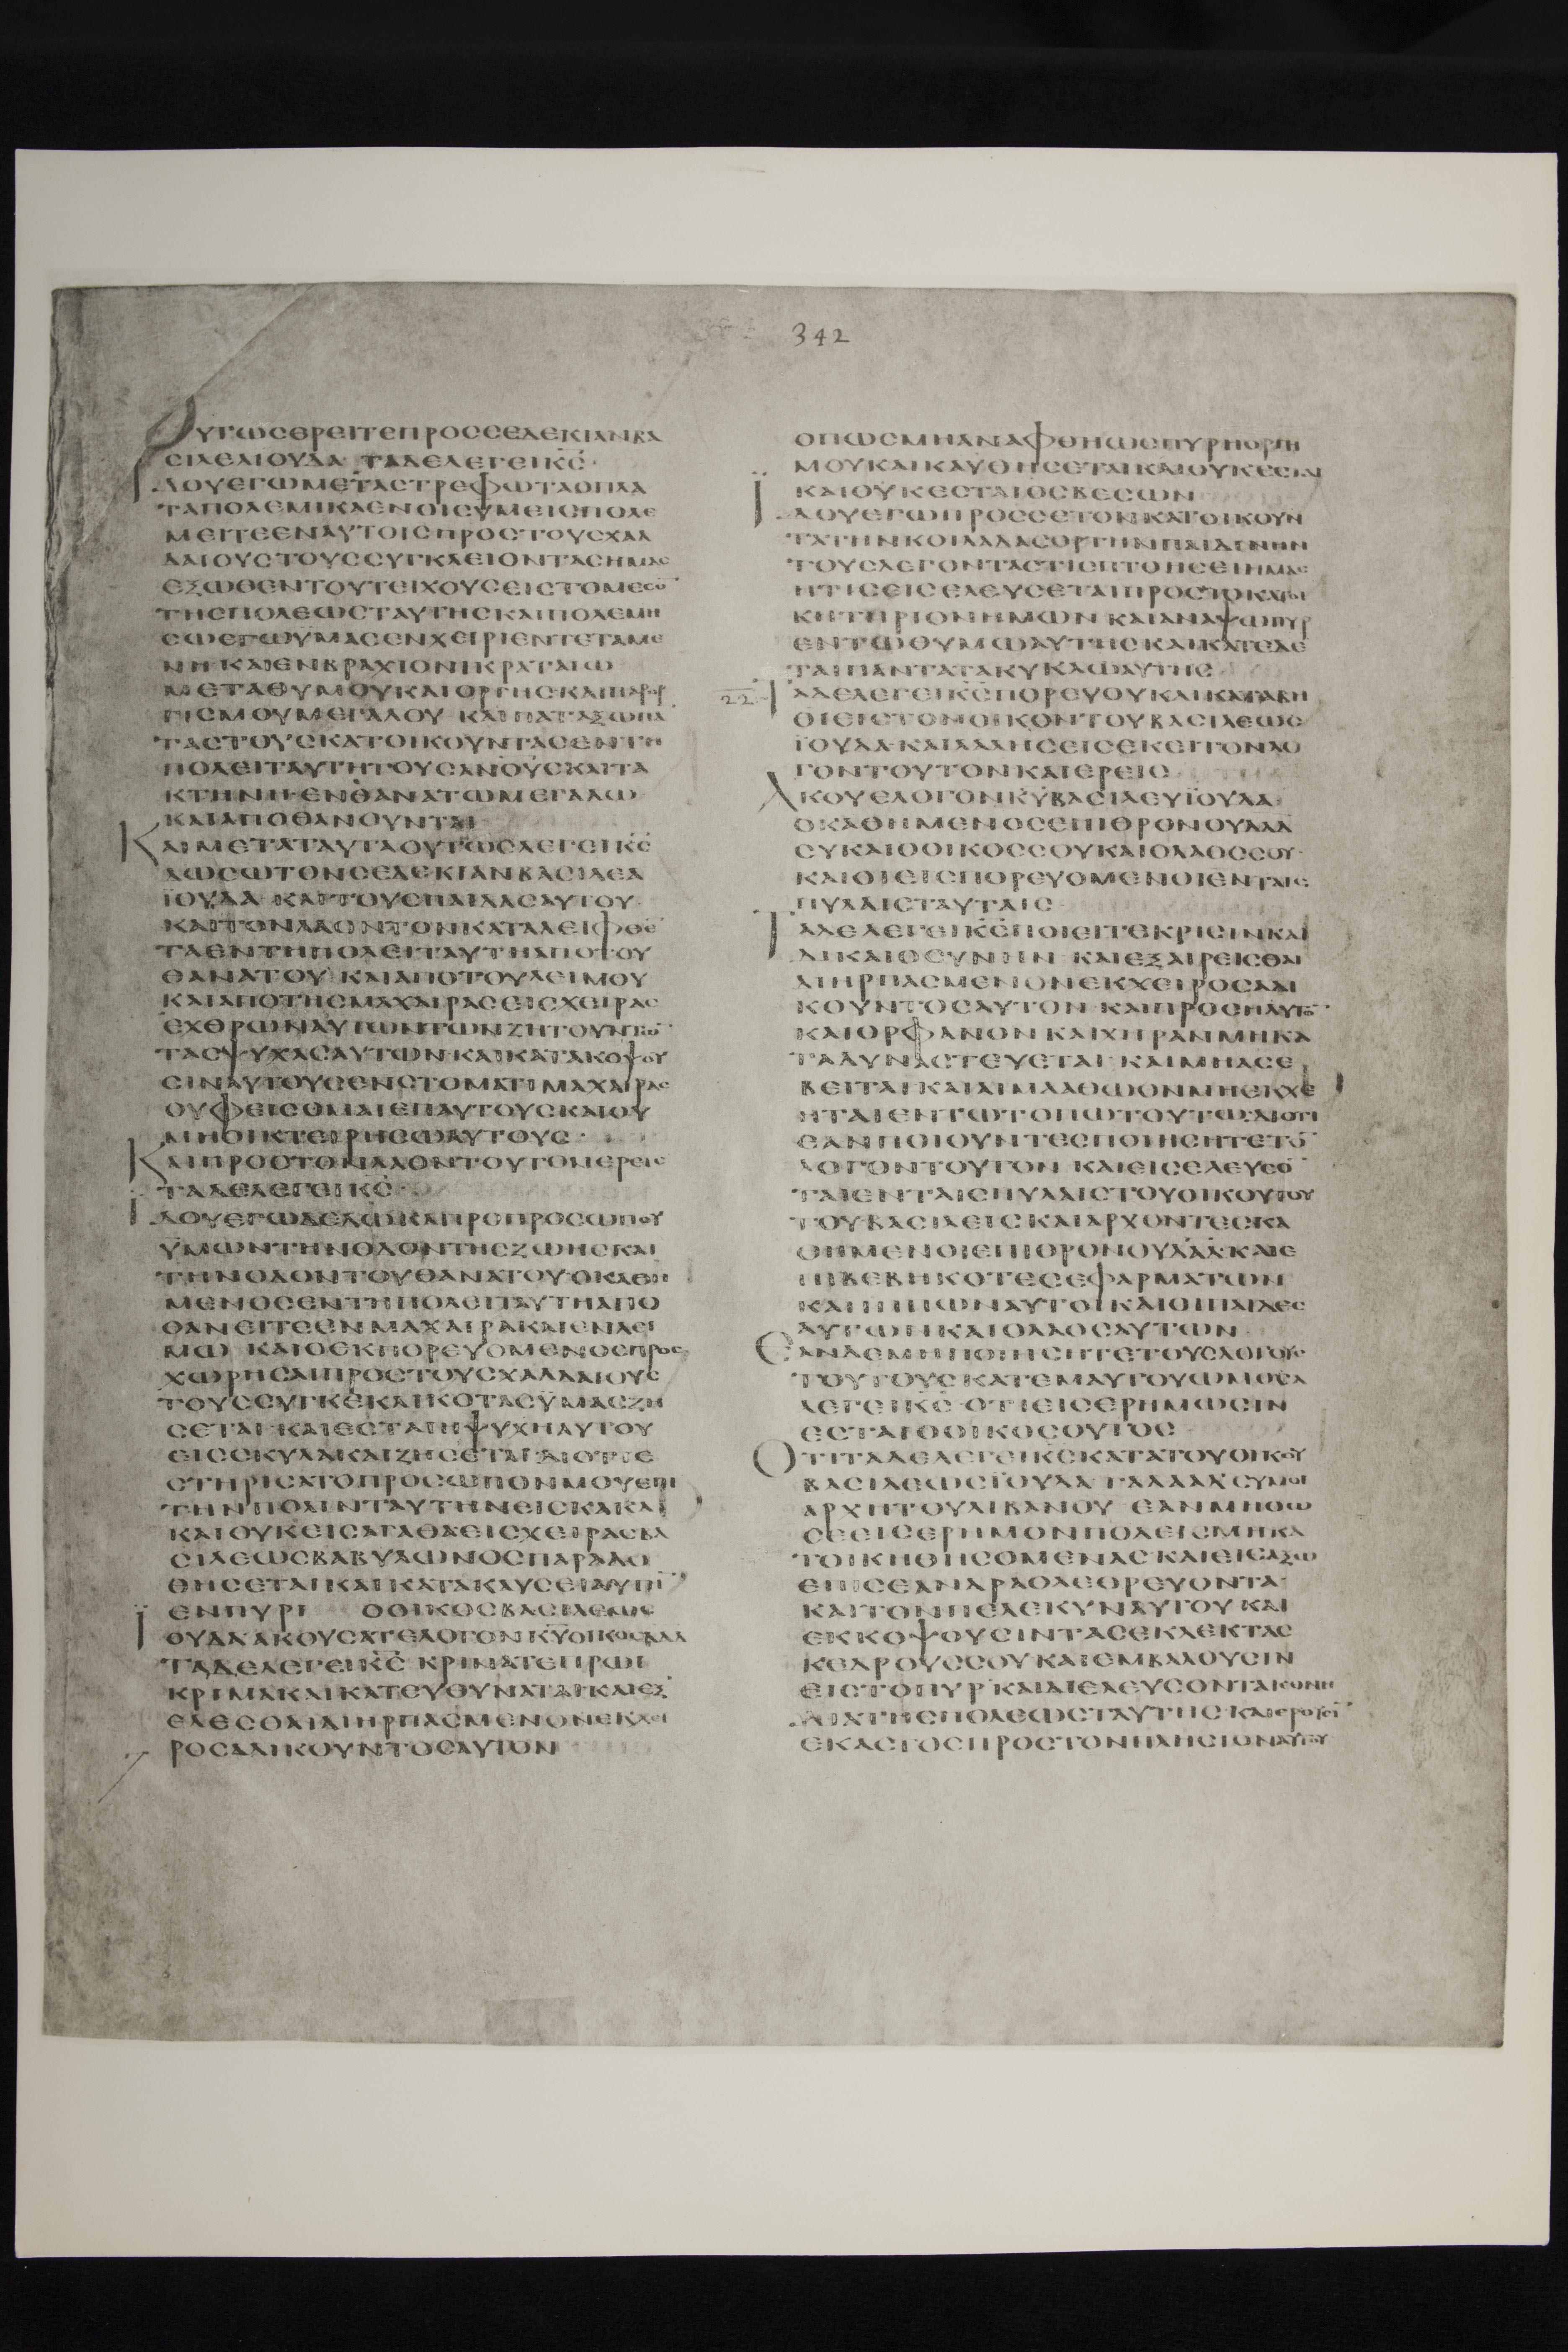 342
ΟΥΤΩΣΕΡΕΙΤΕΠΡΟΣΣΕΔΕΚΙΑΝΒΑ
ΣΙΛΕΑΙΟΥΔΑ ΤΑΔΕΛΕΓΕΙΚΣ
ΙΔΟΥΕΓΩΜΕΤΑΣΤΡΕΦΩΤΑΟΠΛΑ
ΤΑΠΟΛΕΜΙΚΑΕΝΟΙΣΥΜΕΙΣΠΟΛΕ
ΜΕΙΤΕΕΝΑΥΤΟΙΣΠΡΟΣΤΟΥΣΧΑΛ
ΔΑΙΟΥΣΤΟΥΣΣΥΓΚΛΕΙΟΝΤΑΣΗΜΑΣ
ΕΞΩΘΕΝΤΟΥΤΕΙΧΟΥΣΕΙΣΤΟΜΕΣΟ
ΤΗΣΠΟΛΕΩΣΤΑΥΤΗΣΚΑΙΠΟΛΕΜΗ
ΣΩΕΓΩΥΜΑΣΕΝΧΕΙΡΙΕΚΤΕΤΑΜΕ
ΝΗΚΑΙΕΝΒΡΑΧΙΟΝΙΚΡΑΤΑΙΩ
ΜΕΤΑΘΥΜΟΥΚΑΙΟΡΓΗΣΚΑΙΠΑΡΟΡ
ΓΙΣΜΟΥΜΕΓΑΛΟΥ ΚΑΙΠΑΤΑΞΩΠΑ
ΤΑΣΤΟΥΣΚΑΤΟΙΚΟΥΝΤΑΣΕΝΤΗ
ΠΟΛΕΙΤΑΥΤΗΤΟΥΣΑΝΟΥΣΚΑΙΤΑ
ΚΤΗΝΗΕΝΘΑΝΑΤΩΜΕΓΑΛΩ
ΚΑΙΑΠΟΘΑΝΟΥΝΤΑΙ
ΚΑΙΜΕΤΑΤΑΥΤΑΟΥΤΩΣΛΕΓΕΙΚΣ
ΔΩΣΩΤΟΝΣΕΔΕΚΙΑΝΒΑΣΙΛΕΑ
ΙΟΥΔΑ ΚΑΙΤΟΥΣΠΑΙΔΑΣΑΥΤΟΥ
ΚΑΙΤΟΝΛΑΟΝΤΟΝΚΑΤΑΛΕΙΦΘΕ
ΤΑΕΝΤΗΠΟΛΕΙΤΑΥΤΗΑΠΟΤΟΥ
ΘΑΝΑΤΟΥ ΚΑΙΑΠΟΤΟΥΛΕΙΜΟΥ
ΚΑΙΑΠΟΤΗΣΜΑΧΑΙΡΑΣΕΙΣΧΕΙΡΑΣ
ΕΧΘΡΩΝΑΥΤΩΝΤΩΝΖΗΤΟΥΝΤΩ
ΤΑΣΨΥΧΑΣΑΥΤΩΝΚΑΙΚΑΤΑΚΟΨΟΥ
ΣΙΝΑΥΤΟΥΣΕΝΣΤΟΜΑΤΙΜΑΧΑΙΡΑΣ
ΟΥΦΕΙΣΟΜΑΙΕΠΑΥΤΟΥΣΚΑΙΟΥ
ΜΗΟΙΚΤΕΙΡΗΣΩΑΥΤΟΥΣ
ΚΑΙΠΡΟΣΤΟΝΛΑΟΝΤΟΥΤΟΝΕΡΕΙΣ
ΤΑΔΕΛΕΓΕΙΚΣ
ΙΔΟΥΕΓΩΔΕΔΩΚΑΠΡΟΠΡΟΣΩΠΟΥ
ΥΜΩΝΤΗΝΟΔΟΝΤΗΣΖΩΗΣΚΑΙ
ΤΗΝΟΔΟΝΤΟΥΘΑΝΑΤΟΥ·ΟΚΑΘΗ
ΜΕΝΟΣΕΝΤΗΠΟΛΕΙΤΑΥΤΗΑΠΟ
ΘΑΝΕΙΤΕΕΝΜΑΧΑΙΡΑΚΑΙΕΝΛΕΙ
ΜΩ ΚΑΙΟΕΚΠΟΡΕΥΟΜΕΝΟΣΠΡΟΣ
ΧΩΡΗΣΑΙΠΡΟΣΤΟΥΣΧΑΛΔΑΙΟΥΣ
ΤΟΥΣΣΥΓΚΕΚΛΙΚΟΤΑΣΥΜΑΣΖΗ
ΣΕΤΑΙ ΚΑΙΕΣΤΑΙΗΨΥΧΗΑΥΤΟΥ
ΕΙΣΣΚΥΛΑΚΑΙΖΗΣΕΤΑΙ·ΔΙΟΤΙΕ
ΣΤΗΡΙΚΑΤΟΠΡΟΣΩΠΟΝΜΟΥΕΠΙ
ΤΗΝΠΟΛΙΝΤΑΥΤΗΝΕΙΣΚΑΚΑ
ΚΑΙΟΥΚΕΙΣΑΓΑΘΑΕΙΣΧΕΙΡΑΣΒΑ
ΣΙΛΕΩΣΒΑΒΥΛΩΝΟΣΠΑΡΑΔΟ
ΘΗΣΕΤΑΙΚΑΙΚΑΤΑΚΑΥΣΕΙΑΥΤΗ
ΕΝΠΥΡΙ ΟΟΙΚΟΣΒΑΣΙΛΕΩΣ
ΙΟΥΔΑΑΚΟΥΣΑΤΕΛΟΓΟΝΚΥΟΙΚΟΣΔΑΔ
ΤΑΔΕΛΕΓΕΙΚΣ ΚΡΙΝΑΤΕΠΡΩΙ
ΚΡΙΜΑΚΑΙΚΑΤΕΥΘΥΝΑΤΑΙΚΑΙΕΞ
ΕΛΕΣΘΑΙΔΙΗΡΠΑΣΜΕΝΟΝΕΚΧΕΙ
ΡΟΣΑΔΙΚΟΥΝΤΟΣΑΥΤΟΝ
ΟΠΩΣΜΗΑΝΑΦΘΗΩΣΠΥΡΗΟΡΓΗ
ΜΟΥΚΑΙΚΑΥΘΗΣΕΤΑΙΚΑΙΟΥΚΕΣΤΑΙ
ΚΑΙΟΥΚΕΣΤΑΙΟΣΒΕΣΩΝ
ΙΔΟΥΕΓΩΠΡΟΣΣΕΤΟΝΚΑΤΟΙΚΟΥΝ
ΤΑΤΗΝΚΟΙΛΑΔΑΣΟΡΤΗΝΠΑΙΔΙΝΗΝ
ΤΟΥΣΛΕΓΟΝΤΑΣΤΙΣΠΤΟΗΣΕΙΗΜΑΣ
ΗΤΙΣΕΙΣΕΛΕΥΣΕΤΑΙΠΡΟΣΤΟΚΑΤΟΙ
ΚΗΤΗΡΙΟΝΗΜΩΝ ΚΑΙΑΝΑΨΩΠΥΡ
ΕΝΤΩΔΡΥΜΩΑΥΤΗΣΚΑΙΚΑΤΕΔΕ
ΤΑΙΠΑΝΤΑΤΑΚΥΚΛΩΑΥΤΗΣ
22 ΤΑΔΕΛΕΓΕΙΚΣΠΟΡΕΥΟΥΚΑΙΚΑΤΑΒΗ
ΘΙΕΙΣΤΟΝΟΙΚΟΝΤΟΥΒΑΣΙΛΕΩΣ
ΙΟΥΔΑ·ΚΑΙΛΑΛΗΣΕΙΣΕΚΕΙΤΟΝΛΟ
ΓΟΝΤΟΥΤΟΝΚΑΙΕΡΕΙΣ
ΑΚΟΥΕΛΟΓΟΝΚΥΒΑΣΙΛΕΥΙΟΥΔΑ
ΟΚΑΘΗΜΕΝΟΣΕΠΙΘΡΟΝΟΥΔΑΔ
ΣΥΚΑΙΟΟΙΚΟΣΣΟΥΚΑΙΟΛΑΟΣΣΟΥ
ΚΑΙΟΙΕΙΣΠΟΡΕΥΟΜΕΝΟΙΕΝΤΑΙΣ
ΠΥΛΑΙΣΤΑΥΤΑΙΣ
ΤΑΔΕΛΕΓΕΙΚΣΠΟΙΕΙΤΕΚΡΙΣΙΝΚΑΙ
ΔΙΚΑΙΟΣΥΝΗΝ ΚΑΙΕΞΑΙΡΕΙΣΘΑΙ
ΔΙΗΡΠΑΣΜΕΝΟΝΕΚΧΕΙΡΟΣΑΔΙ
ΚΟΥΝΤΟΣΑΥΤΟΝ ΚΑΙΠΡΟΣΗΛΥΤΟ
ΚΑΙΟΡΦΑΝΟΝ ΚΑΙΧΗΡΑΝΜΗΚΑ
ΤΑΔΥΝΑΣΤΕΥΕΤΑΙ ΚΑΙΜΗΑΣΕ
ΒΕΙΤΑΙ·ΚΑΙΑΙΜΑΑΘΩΟΝΜΗΕΚΧΕ
ΗΤΑΙΕΝΤΩΤΟΠΩΤΟΥΤΩ·ΔΙΟΤΙ
ΕΑΝΠΟΙΟΥΝΤΕΣΠΟΙΗΣΗΤΕΤΟ
ΛΟΓΟΝΤΟΥΤΟΝ ΚΑΙΕΙΣΕΛΕΥΣΟ
ΤΑΙΕΝΤΑΙΣΠΥΛΑΙΣΤΟΥΟΙΚΟΥΤΟΥ
ΤΟΥΒΑΣΙΛΕΙΣΚΑΙΑΡΧΟΝΤΕΣΚΑ
ΘΗΜΕΝΟΙΕΠΙΘΡΟΝΟΥΔΑΔΚΑΙΕ
ΠΙΒΕΒΗΚΟΤΕΣΕΦΑΡΜΑΤΩΝ
ΚΑΙΙΠΠΩΝΑΥΤΟΙΚΑΙΟΙΠΑΙΔΕΣ
ΑΥΤΩΝΚΑΙΟΛΑΟΣΑΥΤΩΝ
ΕΑΝΔΕΜΗΠΟΙΗΣΗΤΕΤΟΥΣΛΟΓΟΥΣ
ΤΟΥΤΟΥΣΚΑΤΕΜΑΥΤΟΥΩΜΟΣΑ
ΛΕΓΕΙΚΣ ΟΤΙΕΙΣΕΡΗΜΩΣΙΝ
ΕΣΤΑΙΟΟΙΚΟΣΟΥΤΟΣ
ΟΤΙΤΑΔΕΛΕΓΕΙΚΣΚΑΤΑΤΟΥΟΙΚΟΥ
ΒΑΣΙΛΕΩΣΙΟΥΔΑ ΓΑΛΑΑΔΣΥΜΟΙ
ΑΡΧΗΤΟΥΛΙΒΑΝΟΥ ΕΑΝΜΗΘΩ
ΣΕΕΙΣΕΡΗΜΟΝΠΟΛΕΙΣΜΗΚΑ
ΤΟΙΚΗΘΗΣΟΜΕΝΑΣΚΑΙΕΠΑΞΩ
ΕΠΙΣΕΑΝΔΡΑΟΛΕΘΡΕΥΟΝΤΑ
ΚΑΙΤΟΝΠΕΛΕΚΥΝΑΥΤΟΥ ΚΑΙ
ΕΚΚΟΨΟΥΣΙΝΤΑΣΕΚΛΕΚΤΑΣ
ΚΕΔΡΟΥΣΣΟΥΚΑΙΕΜΒΑΛΟΥΣΙΝ
ΕΙΣΤΟΠΥΡ ΚΑΙΔΙΕΛΕΥΣΟΝΤΑΙΕΘΝΗ
ΔΙΑΤΗΣΠΟΛΕΩΣΤΑΥΤΗΣΚΑΙΕΡΟΥΣΙ
ΕΚΑΣΤΟΣΠΡΟΣΤΟΝΠΛΗΣΙΟΝΑΥΤΟΥ